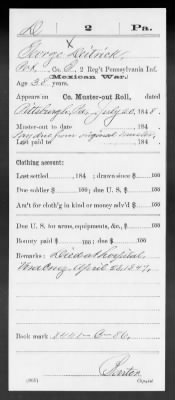 D | 2 | Pa.
George Deitrick,
Co. , 2 Reg't Pennsylvania Inf.
(Mexican War.)
Age 38 years.
Appears on
Co. Muster-out Roll, dated
Pittsburgh, Pa., July 20, 1848.
Muster-out to date , 184 .
Last paid to , 184 .
Clothing account:
Last settled , 184 ; drawn since $ 100
Due soldier $ 100; due U. S. $ 100
Am't for cloth'g in kind or money adv'd $ 100
Due U. S. for arms, equipments, &c., $ 100
Bounty paid $ 100; due $ 100
Remarks: Died at hospital,
Vera Cruz April 24, 1847.
Book mark:
Copyist.